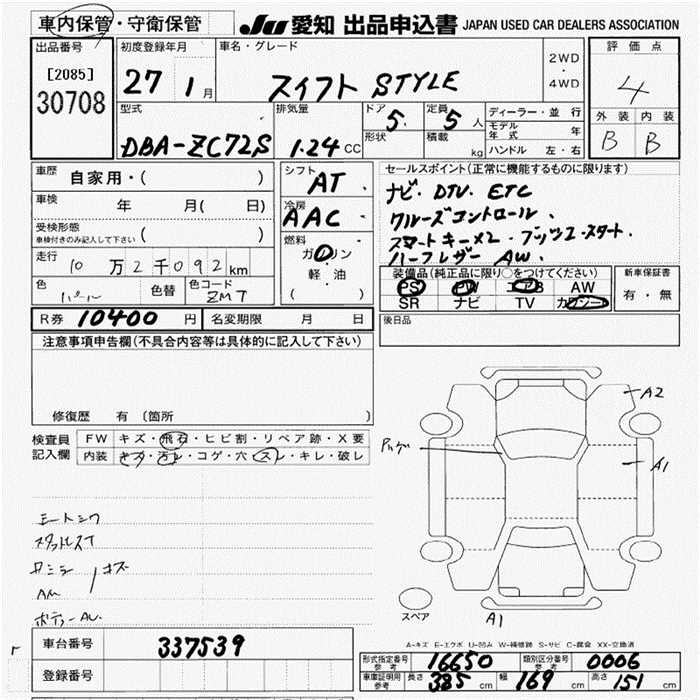 車内保管・守衛保管 JU 愛知 出品申込書 JAPAN USED CAR DEALERS ASSOCIATION
出品番号
[2085]
30708
初度登録年月
27 1月
車名・グレード
スイフト STYLE
2WD
・
4WD
評価点
4
外装 内装
B B
型式
DBA-ZC72S
排気量
1.24 CC
ドア 5
形状
定員 5 人
積載 kg
ディーラー・並行
モデル年式 年
ハンドル 左・右
車歴 自家用・( )
車検 年 月( 日)
受検形態
車検付きのみ記入して下さい ( )
走行 10万2千092km
色 パール 色替 色コード ZMT
シフト AT
冷房 AAC
燃料
ガソリン
・
軽・油
( )
セールスポイント(正常に機能するものに限ります)
ナビ. DTV. ETC
クルーズコントロール、
スマートキー×2. プッシュスタート.
ハーフレザー AW.
装備品(純正品に限り○をつけてください)
PS PW エアB AW
SR ナビ TV カワシート
新車保証書
有・無
R券 10400 円 名変期限 月 日
後日品
注意事項申告欄(不具合内容等は具体的に記入して下さい)
修復歴 有 〔箇所 〕
検査員記入欄
FW キズ・飛石・ヒビ割・リペア跡・X要
内装 キズ・汚レ・コゲ・穴・スレ・キレ・破レ
A2
A1
A1
スペア
A-キズ E-エクボ U-凹み W-補修跡 S-サビ C-腐食 XX-交換済
車台番号 337539
登録番号
形式指定番号 参考 16650 類別区分番号 参考 0006
車庫証明用 参考 長さ 385 cm 幅 169 cm 高さ 151 cm